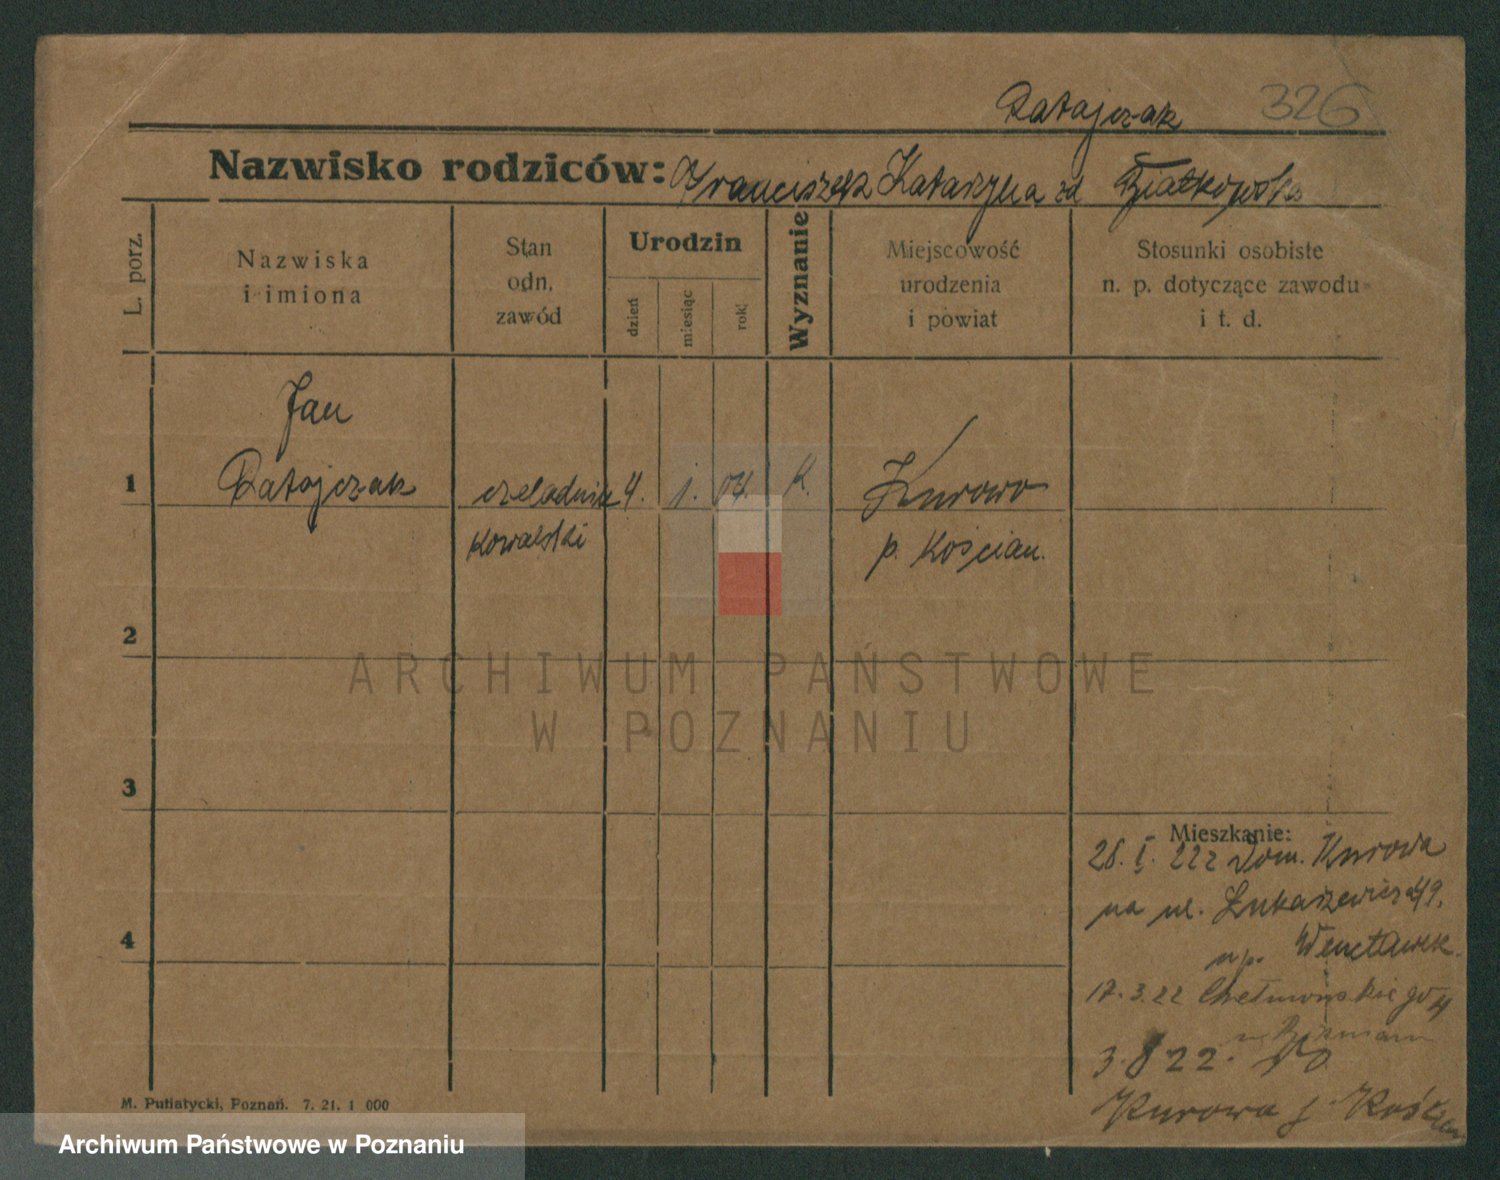 Ratajczak 326
Nazwisko rodziców: Franciszek Katarzyna zd
L. porz.
Nazwiska
i imiona
Stan
odn.
zawód
Urodzin
dzień
miesiąc
rok
Wyznanie
Miejscowość
urodzenia
i powiat
Stosunki osobiste
n. p. dotyczące zawodu
i t. d.
Jan
1 Ratajczak czeladnik 4. 1. 04. K. Kurowo
kowalski p. Kościan.
2
ARCHIWUM PAŃSTWOWE
W POZNANIU
3
Mieszkanie:
28. I. 22 z Dom. Kurowa
na ul. Łukaszewicza 49.
4
17.3.22 Chełmońskiego
3.8 22. do
Kurowa p. Kościan
M. Putiatycki, Poznań. 7. 21. 1 000
Archiwum Państwowe w Poznaniu